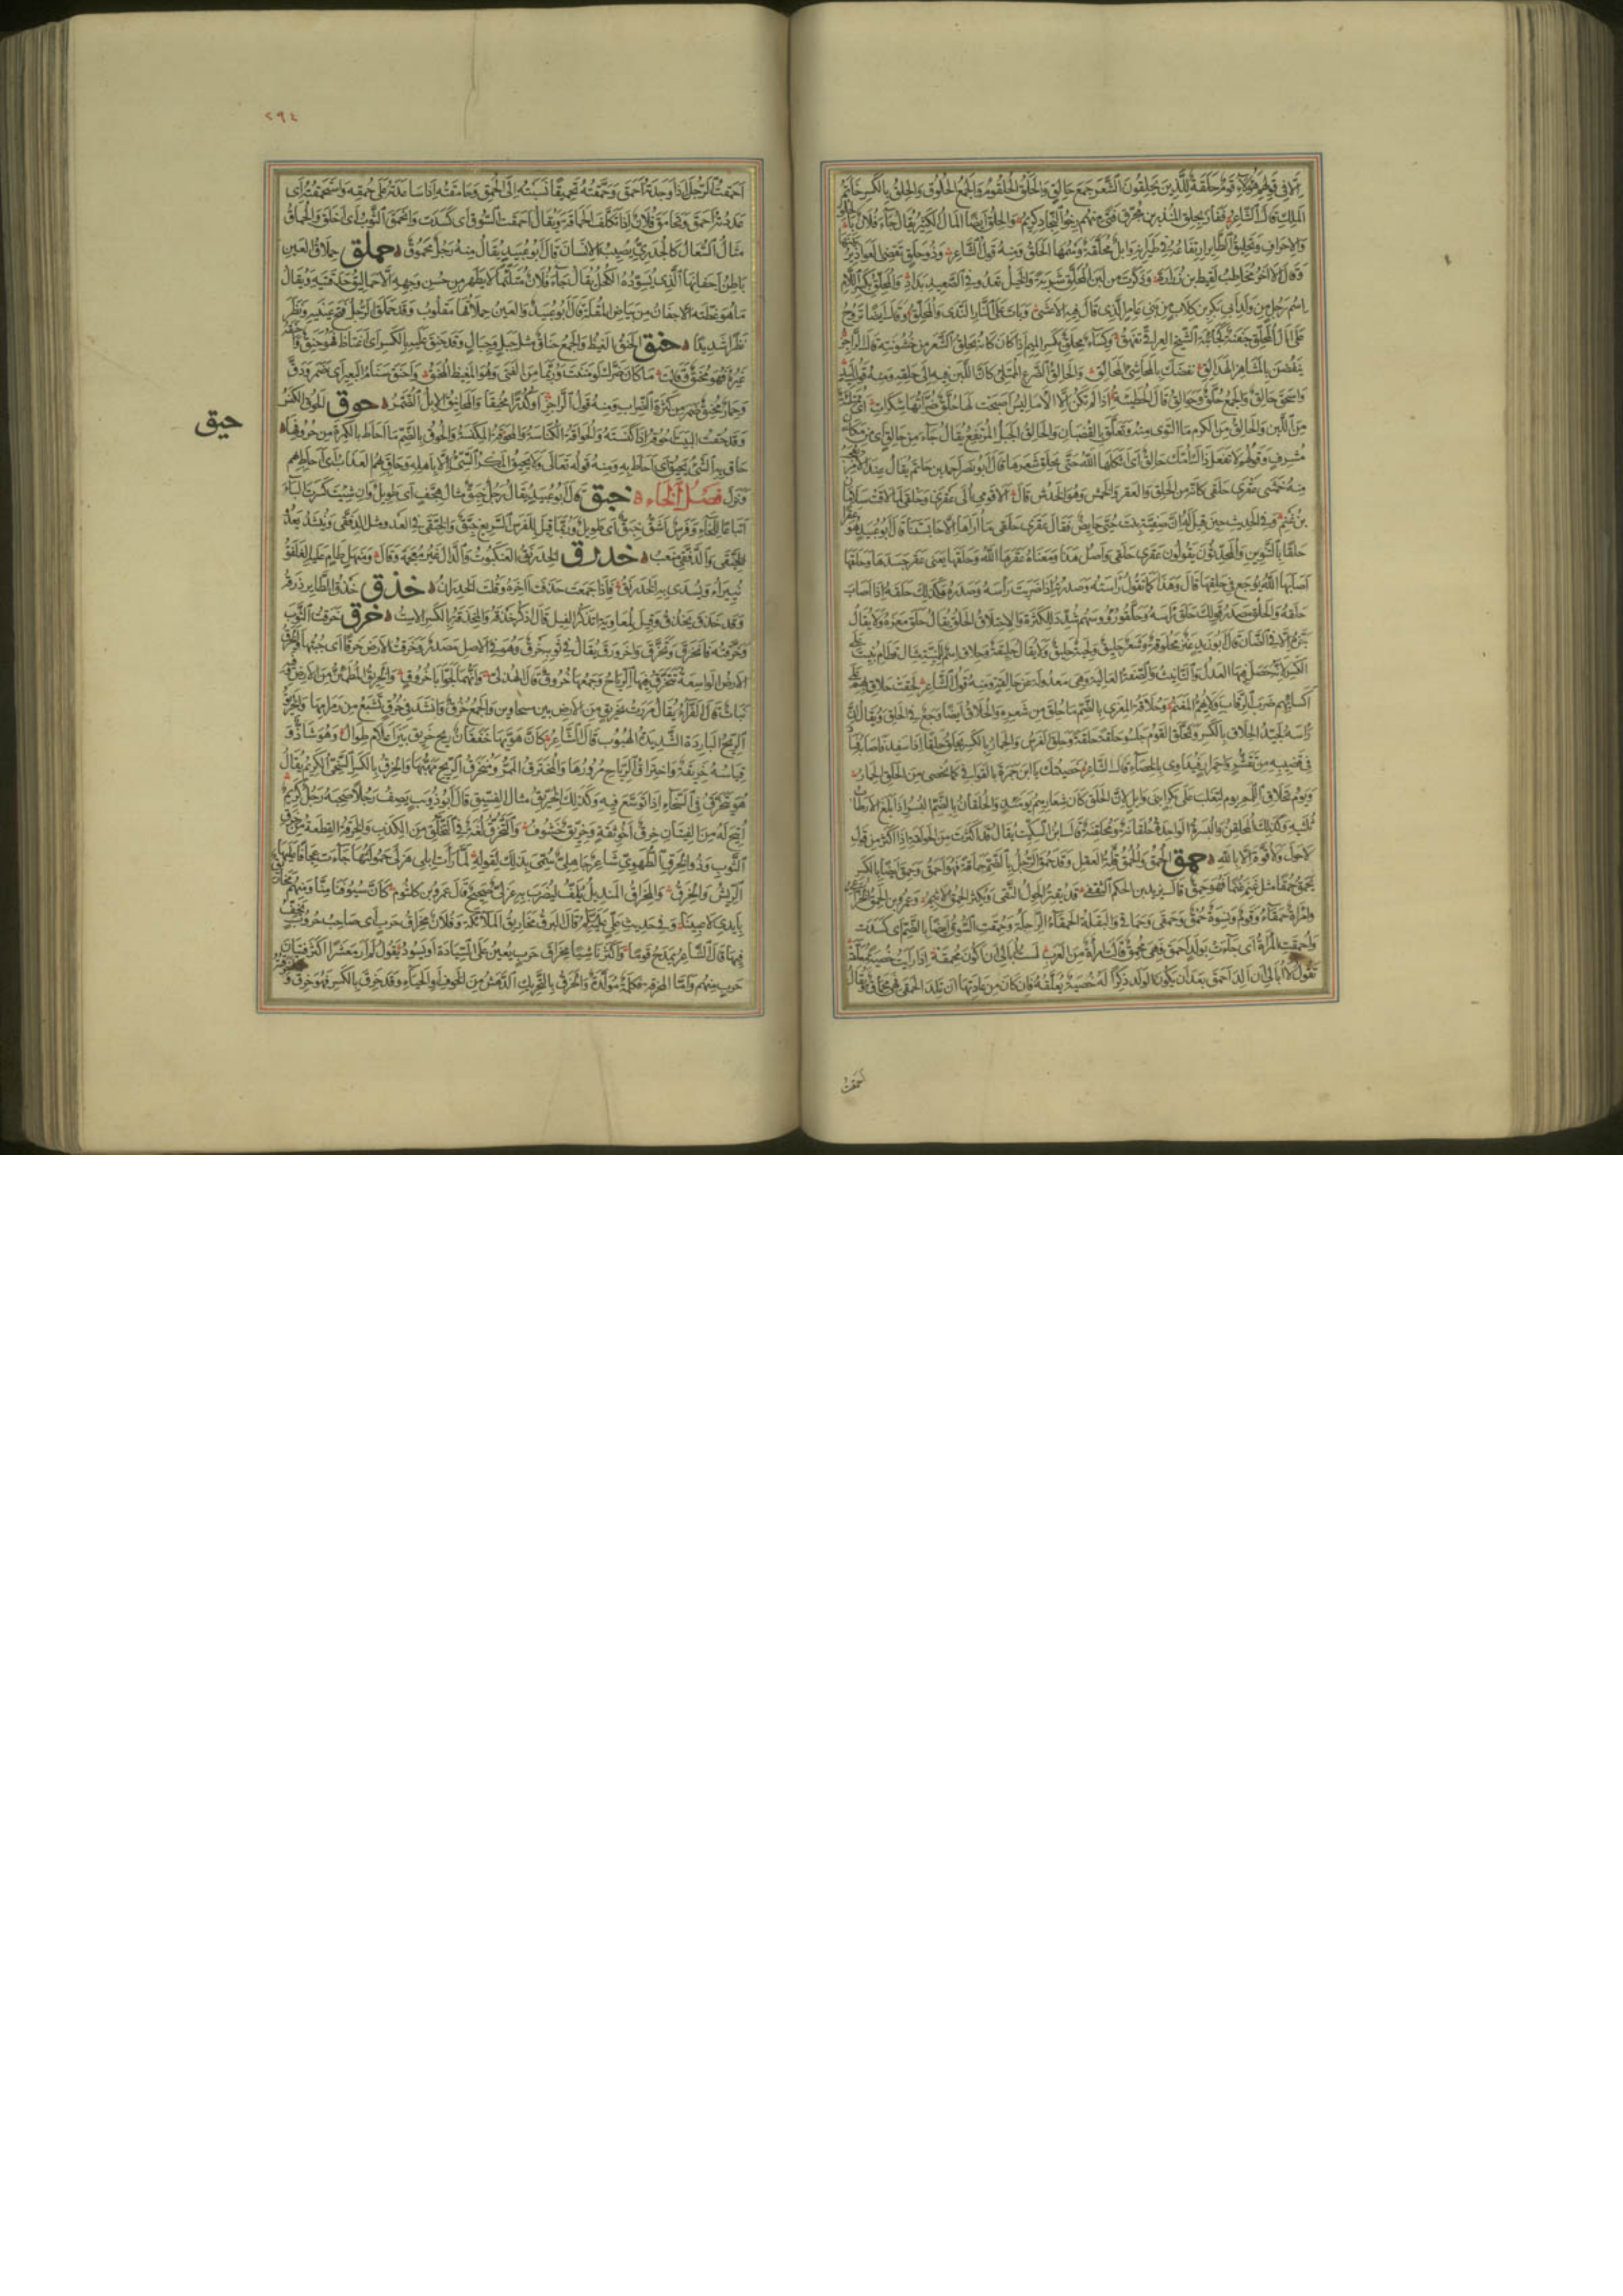 إلا في قولهم هؤلاء قوم حلقة للذين يحلقون الشعر جمع حالق والحلق الحلقوم والجمع الحلوق والحلق بالكسر خاتم
الملك قال الشاعر ففاز بحلق المنذر بن محرق فتى منهم رخو النجاد كريم والحلق أيضا المال الكثير يقال جاء فلان بالحلق
والإحراف وتحليق الطائر ارتفاعه في طيرانه وإبل محلقة وسمها الحلق ومنه قول الشاعر وذو حلق تقضي العواذير بينها
وقال الآخر يخاطب لقيط بن زرارة وذكرت من لبن المحلق شربة والخيل تعدو في الصعيد بداد والمحلق بكسر اللام
اسم رجل من ولد أبي بكر بن كلاب من بني عامر الذي قال فيه الأعشى وبات على النار الندى والمحلق وقال أيضا تروح
على آل المحلق جفنة كجابية الشيخ العراقي تفهق وكساء محلق بكسر الميم إذا كان كأنه يحلق الشعر من خشونته قال الراجز
ينفضن بالمشافر الهدالق نفضك بالمحاشئ المحالق والحالق الضرع الممتلئ كأن اللبن فيه إلى حلقه ومنه قول لبيد
واسحق حالق والجمع حلق وحوالق قال الحطيئة إذا لم تكن إلا الأماليس أصبحت لها حلق ضراتها شكرات
من اللبن والحالق من الكرم ما التوى منه وتعلق بالقضبان والحالق الجبل المرتفع يقال جاء من حالق أي من مكان
مشرف وقولهم لا تفعل ذاك أمك حالق أي أثكلها الله حتى تحلق شعرها قال أبو نصر أحمد بن حاتم يقال عند الأمر
منه خمشى عقرى حلقى كأنه من الحلق والعقر والخمش وهو الخدش قال ألا قومي إلى عقرى وحلقى لما لاقت سلامان
بن غنم وفي الحديث حين قيل له إن صفية بنت حيي حائض فقال عقرى حلقى ما أراها إلا حابستنا قال أبو عبيد هو عقرا
حلقا بالتنوين والمحدثون يقولون عقرى حلقى وأصل هذا ومعناه عقرها الله وحلقها يعني عقر جسدها وحلقها
أصابها الله بوجع في حلقها قال وهذا كما تقول رأسته وصدرته إذا ضربت رأسه وصدره وكذلك حلقه إذا أصاب
حلقه والحلق مصدر قولك حلق رأسه وحلقوا رؤوسهم شدد للكثرة والاحتلاق الحلق يقال حلق معزه ولا يقال
جز إلا في الضأن قال أبو زيد عنز محلوقة وشعر حليق ولحية حليق ولا يقال حليقة وحلاق اسم للمنية مثال قطام بنيت على
الكسر لأنه حصل فيها العدل والتأنيث والصفة الغالبة وهي معدولة عن حالقة ومنه قول الشاعر لحقت حلاق بهم على
أكسائهم ضرب الرقاب ولا يهم المغنم وحلاقة المعزى بالضم ما حلق من شعره والحلاق أيضا وجع في الحلق ويقال إن
رأسه لجيد الحلاق بالكسر وتحلق القوم جلسوا حلقة حلقة وحلق الفرس والحمار بالكسر يحلق حلقا إذا سفد فأصابه فساد
في قضيبه من تقشر واحمرار فيداوى بالخصاء قال الشاعر خصيتك يا ابن حمزة بالقوافي كما يخصى من الحلق الحمار
ويوم تحلاق اللمم يوم لتغلب على بكر بن وائل لأن الحلق كان شعارهم يومئذ والحلقان بالضم البسر إذا بلغ الإرطاب
ثلثيه وكذلك المحلقن والبسرة الواحدة حلقانة ومحلقنة قال ابن السكيت يقال قد أكثرت من الحولقة إذا أكثر من قول
لا حول ولا قوة إلا بالله حمق الحمق والحمق قلة العقل وقد حمق الرجل بالضم حماقة فهو أحمق وحمق أيضا بالكسر
يحمق حمقا مثل غنم غنما فهو حمق قال يزيد بن الحكم الثقفي قد يقتر الحول التقي ويكثر الحمق الأثيم وعمرو بن الحمق
وامرأة حمقاء وقوم ونسوة حمق وحمقى وحماقى والبقلة الحمقاء الرجلة وحمقت السوق أيضا بالضم أي كسدت
وأحمقت المرأة أي جاءت بولد أحمق فهي محمق قالت امرأة من العرب لست أبالي أن أكون محمقة إذا رأيت خصية معلقة
تقول لا أبالي أن ألد أحمق بعد أن يكون الولد ذكرا له خصية معلقة فإن كان من عادتها أن تلد الحمقى فهي محماق ويقال
أحمقت
٢٩٤
أحمقت الرجل إذا وجدته أحمق وحمقته تحميقا نسبته إلى الحمق وحامقته إذا ساعدته على حمقه واستحمقته أي
عددته أحمق وتحامق فلان إذا تكلف الحماقة ويقال انحمقت السوق أي كسدت وانحمق الثوب أي أخلق والحماق
مثال السعال كالجدري يصيب الإنسان قال أبو عبيد يقال منه رجل محموق حملق حملاق العين
باطن أجفانها الذي يسوده الكحل يقال جاء فلان متلثما لا يظهر من حسن وجهه إلا حماليق حدقتيه ويقال
ما هو غطته الأجفان من بياض المقلة قال أبو عبيد والعين حملاقها مقلوب وقد حملق الرجل فتح عينيه ونظر
نظرا شديدا حنق الحنق الغيظ والجمع حناق مثل جبل وجبال وقد حنق عليه بالكسر أي اغتاظ فهو حنق وأحنقه
غيره فهو محنق قالت ما كان ضرك لو مننت وربما من الفتى وهو المغيظ المحنق وأحنق سنام البعير أي ضمر ودق
وحمار محنق ضمر من كثرة الضراب ومنه قول الراجز والمحانيق الإبل الضمر حوق الحوق الكنس
وقد حقت البيت أحوقه إذا كنسته والحواقة الكناسة والمحوقة المكنسة والحوق بالضم ما أحاط بالكمرة من حروفها
حيق
حاق به الشيء يحيق أي أحاط به ومنه قوله تعالى ولا يحيق المكر السيئ إلا بأهله وحاق بهم العذاب أي أحاط بهم
ونزل فصل الخاء خبق قال أبو عبيد يقال رجل خبق مثال هجف أي طويل وإن شئت كسرت الباء
اتباعا للخاء وفرس أشق خبق أي طويل وربما قيل للفرس السريع خبق والخبقى في العدو مثل الدفقى وينشد يعدو
الخبقى والدفقى منعب خدرق الخدرنق العنكبوت والدال غير معجمة وقال ومنهل طام عليه الغلفق
ينير أو يسدي به الخدرنق فإذا جمعت حذفت آخره وقلت الخدارن خذق خذق الطائر ذرقه
وقد خذق يخذق وقيل لمعاوية أتذكر الفيل قال أذكر خذقه والمخذقة بالكسر الاست خرق خرقت الثوب
وخرقته فانخرق وتخرق واخرورق يقال في ثوبه خرق وهو في الأصل مصدر وخرقت الأرض خرقا أي جبتها والخرق
الأرض الواسعة تتخرق فيها الرياح وجمعها خروق قال الهذلي وإنهما لجوابا خروق والخريق المطمئن من الأرض وفيه
نبات قال الفراء يقال مررت بخريق من الأرض بين مسحاوين والجمع خرق وأنشد في خرق تشبع من رمرامها والخريق
الريح الباردة الشديدة الهبوب قال الشاعر كأن هويها خفقان ريح خريق بين أعلام طوال وهو شاذ و
قياسه خريقة واختراق الرياح مرورها والمخترق الممر ومنخرق الريح مهبها والخرق بالكسر السخي الكريم يقال
هو يتخرق في السخاء إذا توسع فيه وكذلك الخريق مثال الفسيق قال أبو ذؤيب يصف رجلا صحبه رجل كريم
أتيح له من الفتيان خرق أخو ثقة وخريق خشوف والتخرق لغة في التخلق من الكذب والخرقة القطعة من خرق
الثوب وذو الخرق الطهوي شاعر جاهلي سمي بذلك لقوله لما رأت إبلي هزلى حمولتها جاءت عجافا عليها
الريش والخرق والمخراق المنديل يلف ليضرب به عربي صحيح قال عمرو بن كلثوم كأن سيوفنا منا ومنهم مخاريق
بأيدي لاعبينا وفي حديث علي عليه السلام قال البرق مخاريق الملائكة وفلان مخراق حرب أي صاحب حروب يخف
فيها قال الشاعر يمدح قوما وأكثر ناشئا مخراق حرب يعين على السيادة أو يسود يقول لم أر معشرا أكثر فتيان
حرب منهم وأما المخرقة فكلمة مولدة والخرق بالتحريك الدهش من الخوف أو الحياء وقد خرق بالكسر فهو خرق و